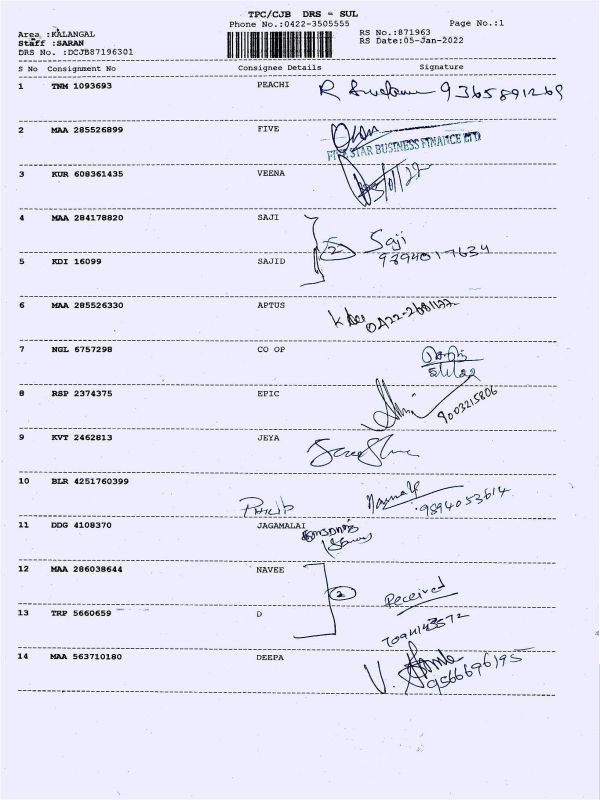 TPC/CJB DRS - SUL
Phone No.:0422-3505555 Page No.:1
Area :KALANGAL RS No.:871963
Staff :SARAN RS Date:05-Jan-2022
DRS No. :DCJB87196301
S No Consignment No Consignee Details Signature
1 TNM 1093693 PEACHI R 9365891269
2 MAA 285526899 FIVE
FIVE STAR BUSINESS FINANCE LTD
3 KUR 608361435 VEENA
4 MAA 284178820 SAJI
2 Saji
5 KDI 16099 SAJID 9894017634
6 MAA 285526330 APTUS
0422-2681122
7 NGL 6757298 CO OP
8 RSP 2374375 EPIC
9003215806
9 KVT 2462813 JEYA
10 BLR 4251760399
Philip 9894053614
11 DDG 4108370 JAGAMALAI
12 MAA 286038644 NAVEE
2 Received
13 TRP 5660659 D
14 MAA 563710180 DEEPA V.
9566696195